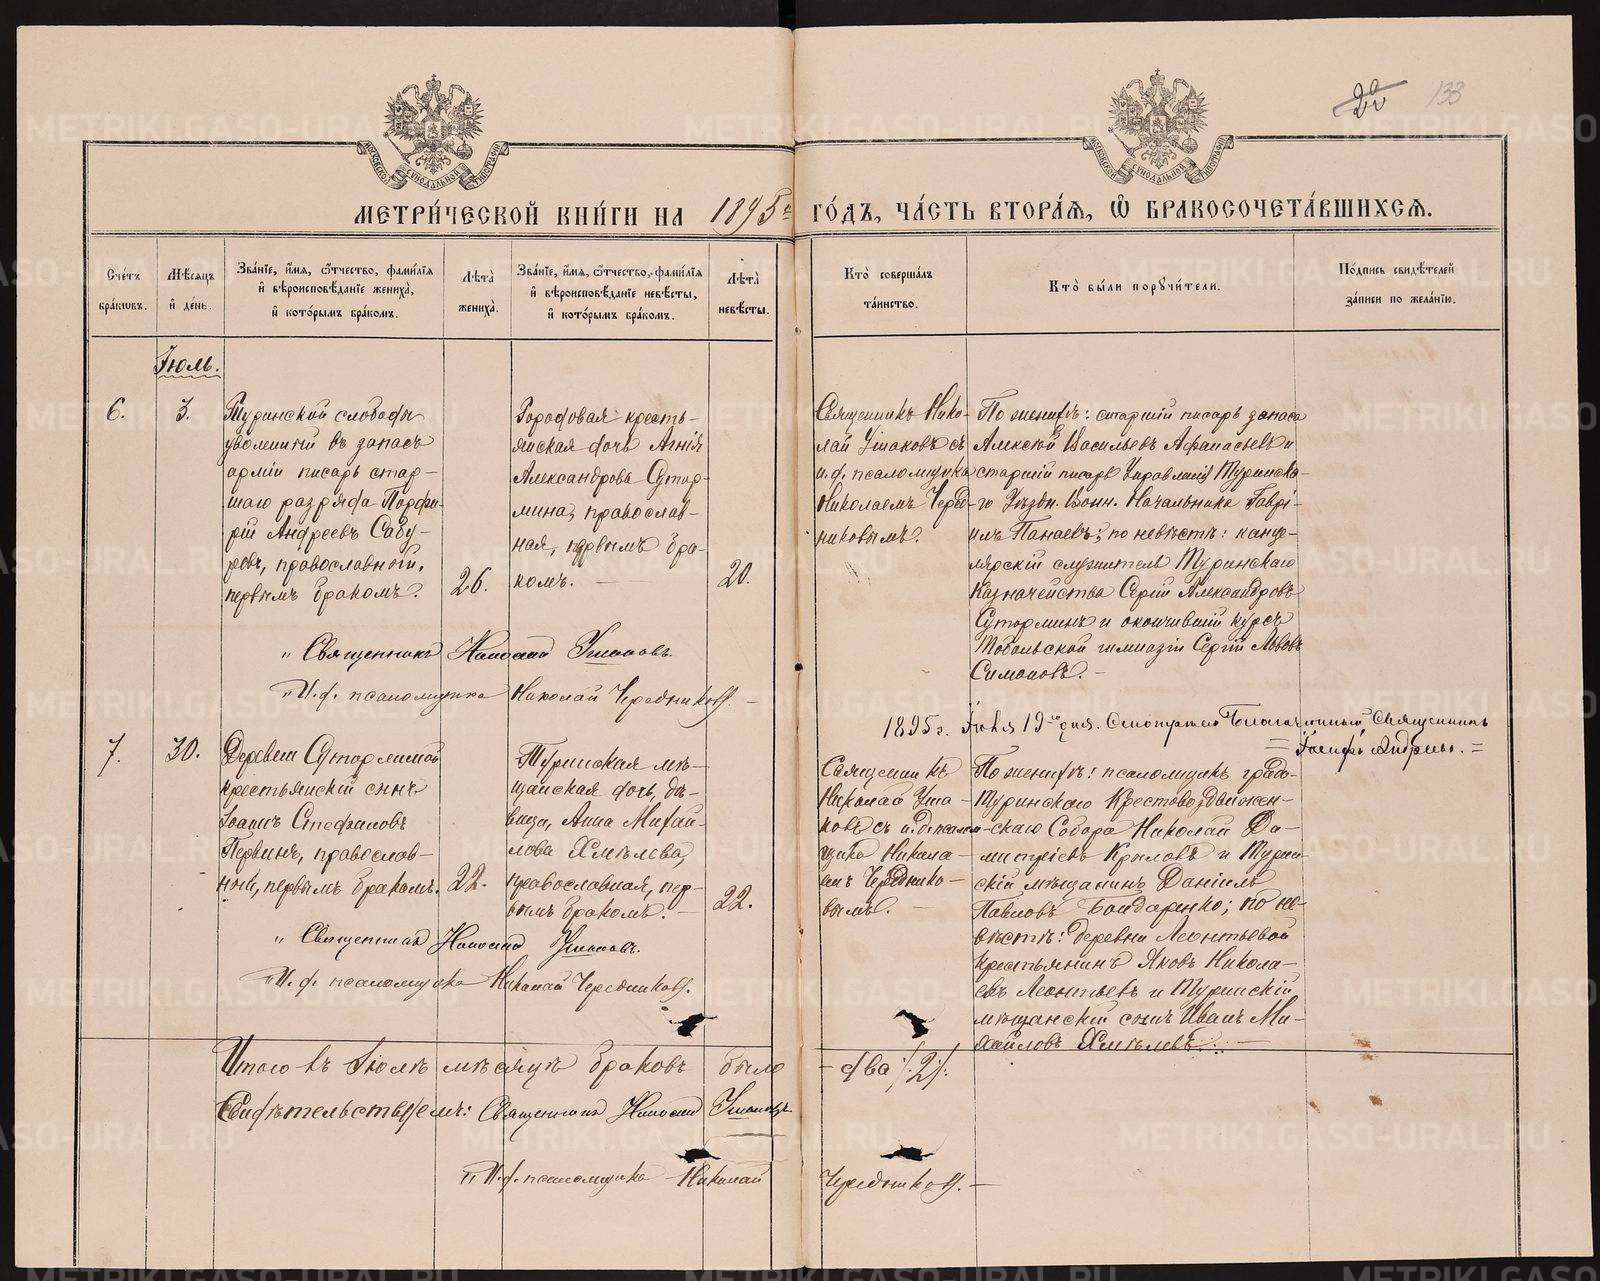 20 133
МОСКОВСКОЙ СѴНОДАЛЬНОЙ ТИПОГРАФІИ
МОСКОВСКОЙ СѴНОДАЛЬНОЙ ТИПОГРАФІИ
МЕТРИ́ЧЕСКОЙ КНИ́ГИ НА 1895й ГО́ДЪ, ЧА́СТЬ ВТОРА́Я, Ѽ БРАКОСОЧЕТА́ВШИХСЯ.
Сче́тъ
бра́кѡвъ.
Мѣ́сяцъ
и҆ де́нь.
Зва́нїе, и҆́мя, ѻ҆́тчество, фами́лїя
и҆ вѣроисповѣ́данїе жениха̀,
и҆ кото́рымъ бра́комъ.
Лѣ́та̀
жениха̀.
Зва́нїе, и҆́мя, ѻ҆́тчество, фами́лїя
и҆ вѣроисповѣ́данїе невѣ́сты,
и҆ кото́рымъ бра́комъ.
Лѣ́та̀
невѣ́сты.
Кто̀ соверша́лъ
та́инство.
Кто̀ бы́ли порꙋчи́тели.
По́дпись свидѣ́телей
за́писи по жела́нїю.
Іюль.
6.
3.
Туринской слободы
уволенный въ запасъ
арміи писарь стар-
шаго разряда Порфи-
рій Андреевъ Сабу-
ровъ, православный,
первымъ бракомъ.
26.
Городовая кресть-
янская дочь Агнія
Александрова Сутор-
мина, православ-
ная, первымъ бра-
комъ. —
20.
Священникъ Нико-
лай Ушаковъ съ
и. д. псаломщика
Николаемъ Черед-
никовымъ.
По женихѣ: старшій писарь запаса
Алексѣй Васильевъ Афанасьевъ и
старшій писарь Управленія Туринска-
го Уѣздн. Воин. Начальника Гаврі-
илъ Панаевъ; по невѣстѣ: канце-
лярскій служитель Туринскаго
Казначейства Сергій Александровъ
Сутормннъ и окончившій курсъ
Тобольской гимназіи Сергій Львовъ
Симоновъ. —
„ Священникъ Николай Ушаковъ.
„ И. д. псаломщика Николай Чередниковъ. —
1895 г. Іюля 19го дня. Смотрѣлъ Благочинный Священникъ
= Іосифъ Андреевъ. =
7.
30.
Деревни Суторминой
крестьянскій сынъ
Іоаннъ Стефановъ
Первинъ, православ-
ный, первымъ бракомъ.
22.
Туринская мѣ-
щанская дочь, дѣ-
вица, Анна Михай-
лова Хмѣлева,
православная, пер-
вымъ бракомъ. —
22.
Священникъ
Николай Уша-
ковъ съ и. д. псалом-
щика Никола-
емъ Чередико-
вымъ. —
По женихѣ: псаломщикъ градо-
Туринскаго Крестовоздвижен-
скаго Собора Николай Ди-
митріевъ Крыловъ и Турин-
скій мѣщанинъ Даніилъ
Павловъ Бондаренко; по не-
вѣстѣ: деревни Леонтьевой
крестьянинъ Яковъ Никола-
евъ Леонтьевъ и Туринскій
мѣщанскій сынъ Иванъ Ми-
хайловъ Хмѣлевъ. —
„ Священникъ Николай Ушаковъ.
„ И. д. псаломщика Николай Чередниковъ.
Итого въ Іюлѣ мѣсяцѣ браковъ было — два /:2:/.
Свидѣтельствуемъ: Священникъ Николай Ушаковъ.
„ И. д. псаломщика Николай Чередниковъ. —
METRIKI.GASO-URAL.RU